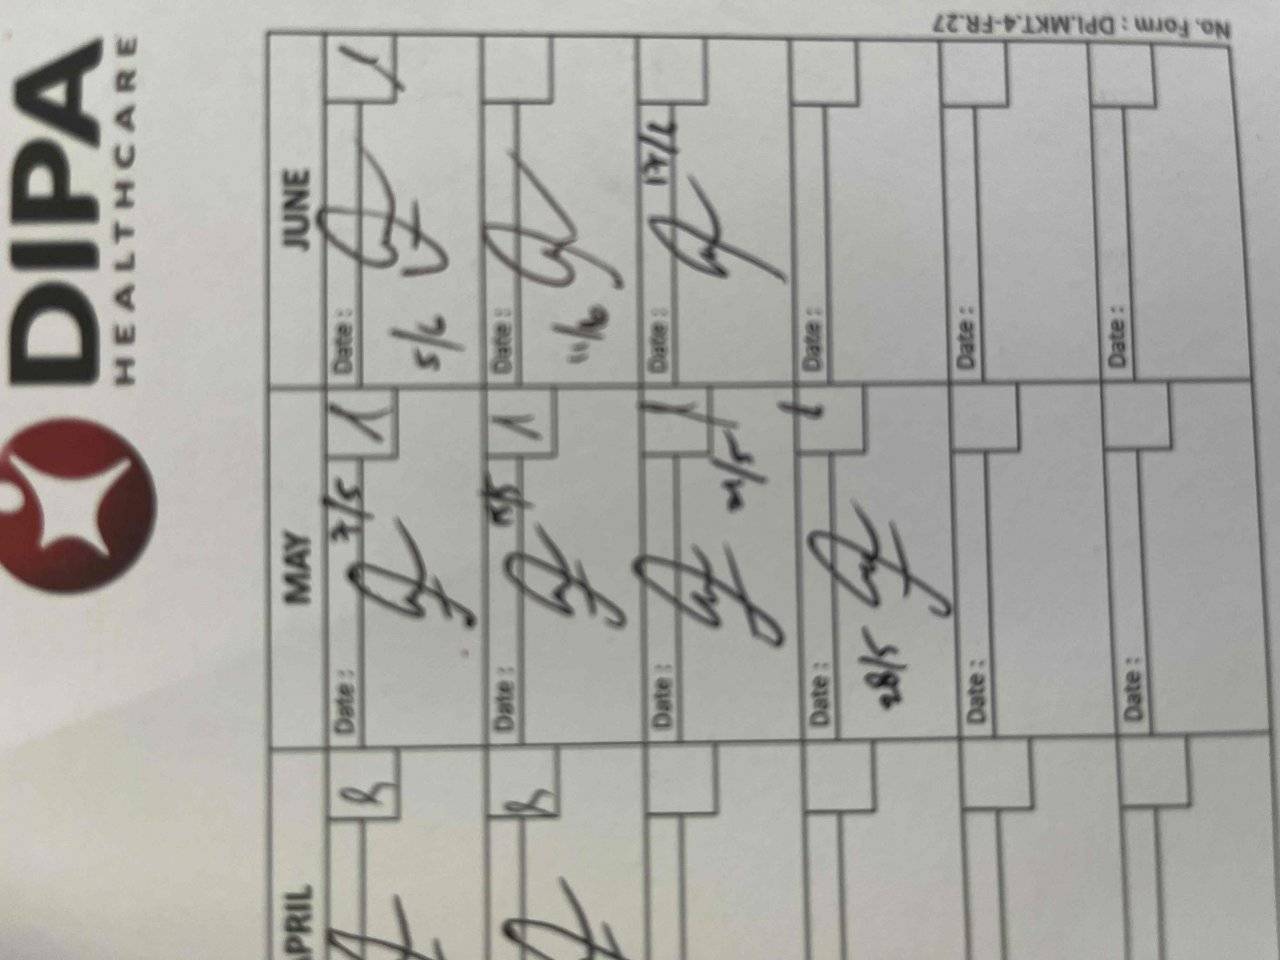 DIPA
HEALTHCARE
APRIL MAY JUNE
Date : 7/5 1 Date : 1
5/6
Date : 1 Date :
11/6
Date : 1 Date : 17/6
21/5
Date : Date :
28/5
Date : Date :
Date : Date :
No. Form : DPI.MKT.4-FR.27